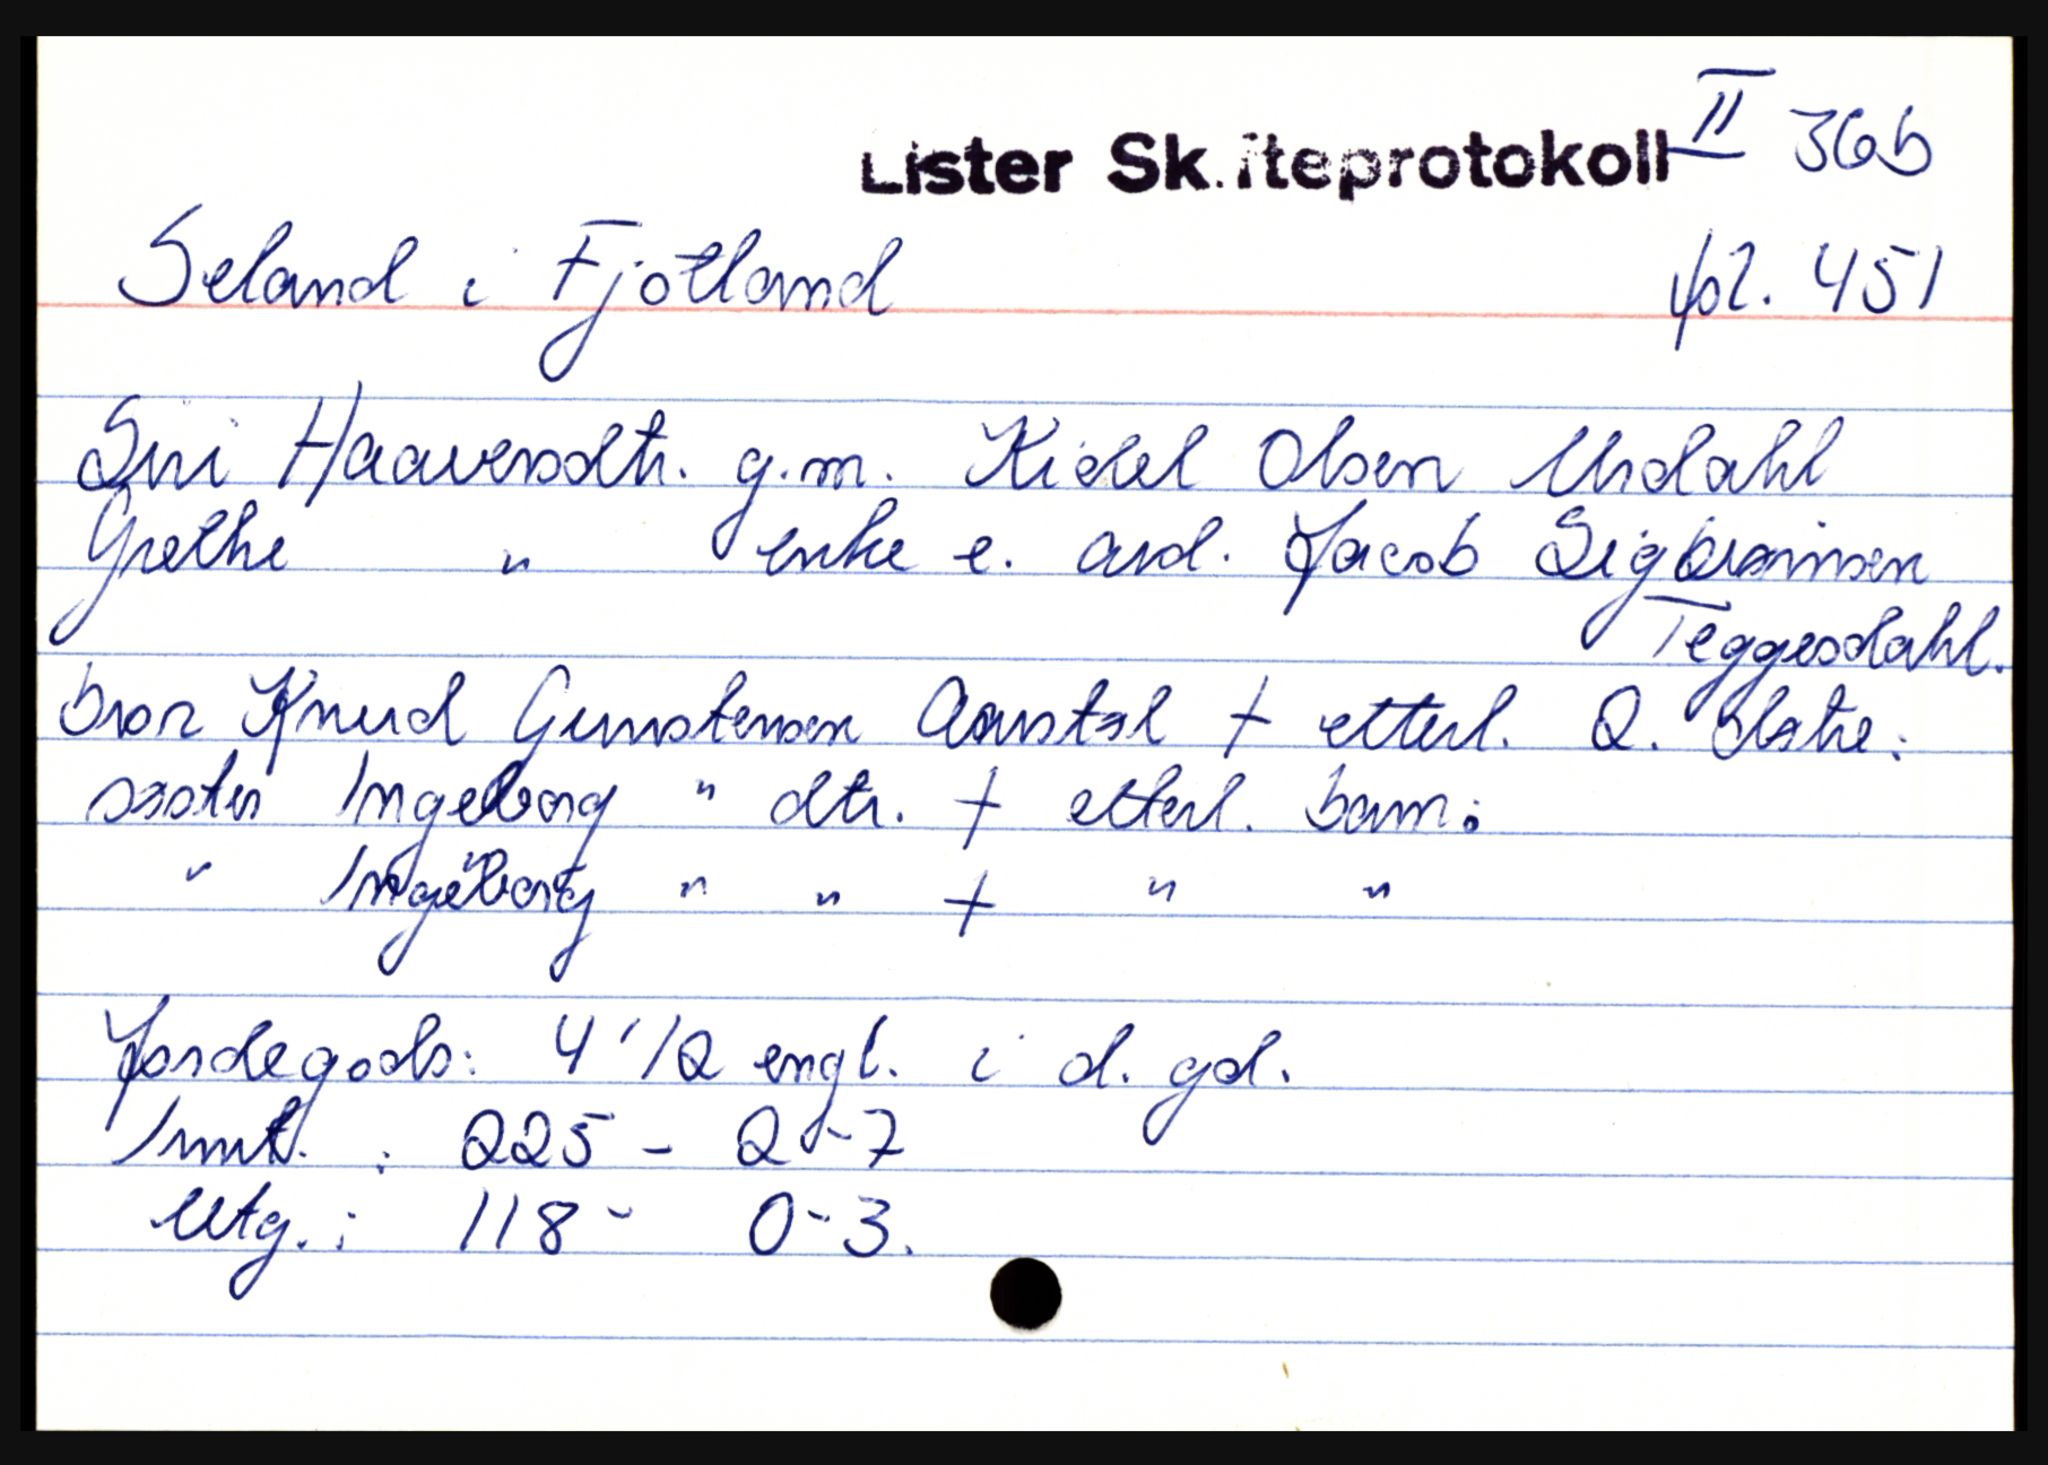 Lister Skifteprotokoll II 36b
Seland i Fjotland fol. 451
Siri Haaversdtr. g.m. Kidel Olsen Urdahl
Grethe " enke e. avd. Jacob Sigbiørnsen
Teggesdahl.
bror Knud Gunstensen Aamstøl + etterl. 2.
søster Ingeborg " dtr. + etterl. barn:
" Ingeborg " " + " "
Jordegods: 4 1/2 engl. i d. gd.
Innt. : 225 - 2 - 7
Utg. : 118 - 0 - 3.